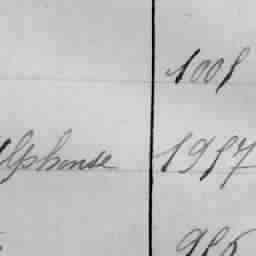 1008
Alphonse 1987
986